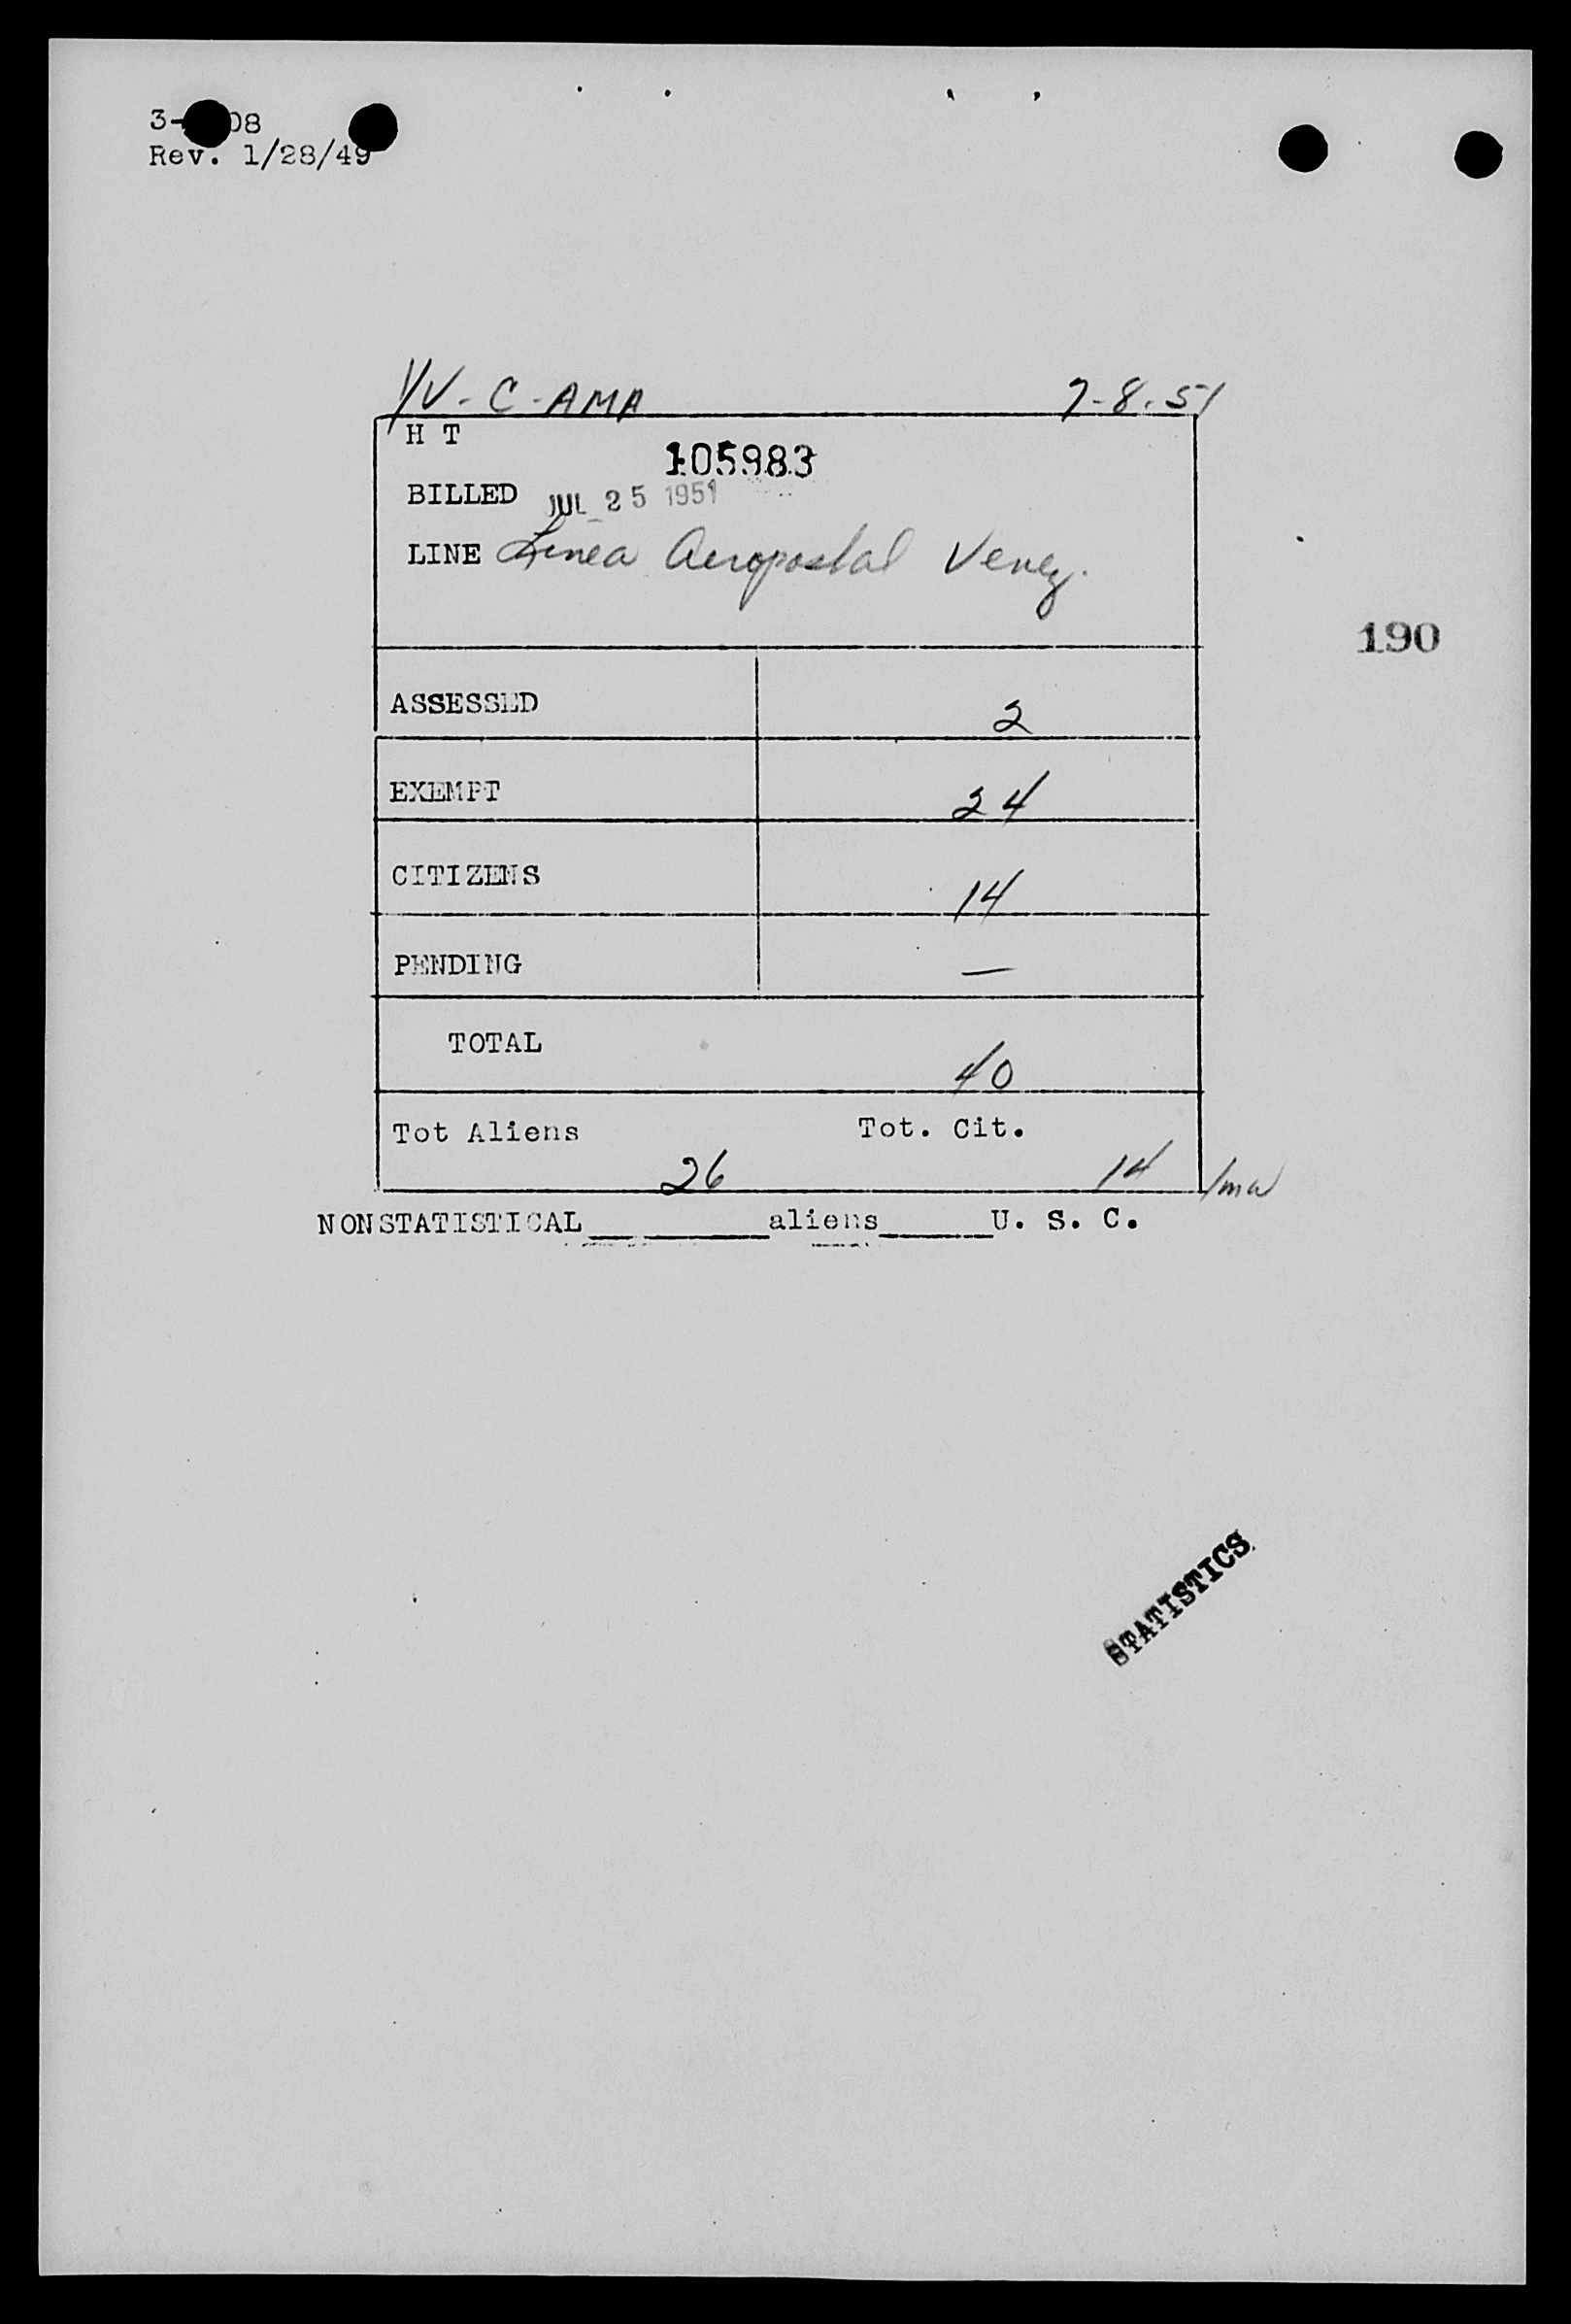 Rev. 1/28/49
YV-C-AMA 7-8-51
H T
105983
BILLED JUL 25 1951
LINE Linea Aeropostal Venez.
190
ASSESSED 2
EXEMPT 24
CITIZENS 14
PENDING —
TOTAL 40
Tot Aliens Tot. Cit.
26 14 /ma
NONSTATISTICAL ____ aliens ____ U. S. C.
STATISTICS